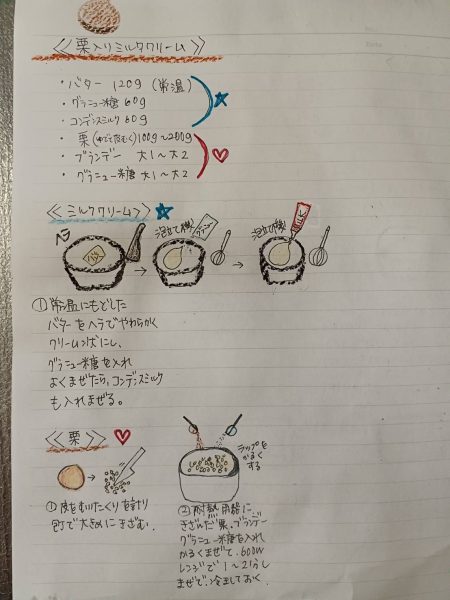 ≪栗入りミルククリーム≫
・バター 120g (常温)
・グラニュー糖 60g
・コンデンスミルク 60g
・栗(ゆでて皮むく)100g〜200g
・ブランデー 大1〜大2
・グラニュー糖 大1〜大2
≪ミルククリーム≫
ヘラ
バター
泡立て機
泡立て機
①常温にもどした
バターをヘラでやわらかく
クリームぽにし、
グラニュー糖を入れ
よくまぜたら、コンデンスミルク
も入れまぜる。
≪栗≫
ラップを
かるく
する
①皮をむいたくりを計り
包丁で大きめにきざむ。
②耐熱用器に、
きざんだ栗、ブランデー
グラニュー糖を入れ
かるくまぜて、600W
レンジで1〜2分し
まぜて、冷ましておく。